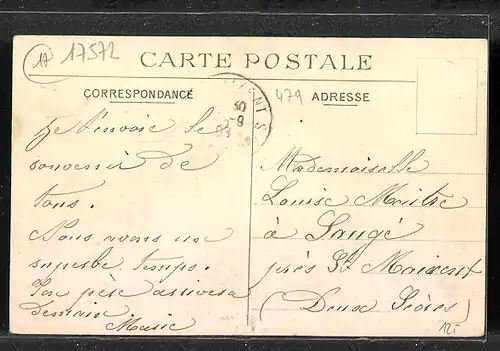 17
17572
CARTE POSTALE
CORRESPONDANCE
479
ADRESSE
Je t'envoie le
souvenir de
tous.
Nous avons un
superbe temps.
Ton père arrivera
demain
Marie
Mademoiselle
Louise
à Saugé
près St Maixent
(Deux Sèvres)